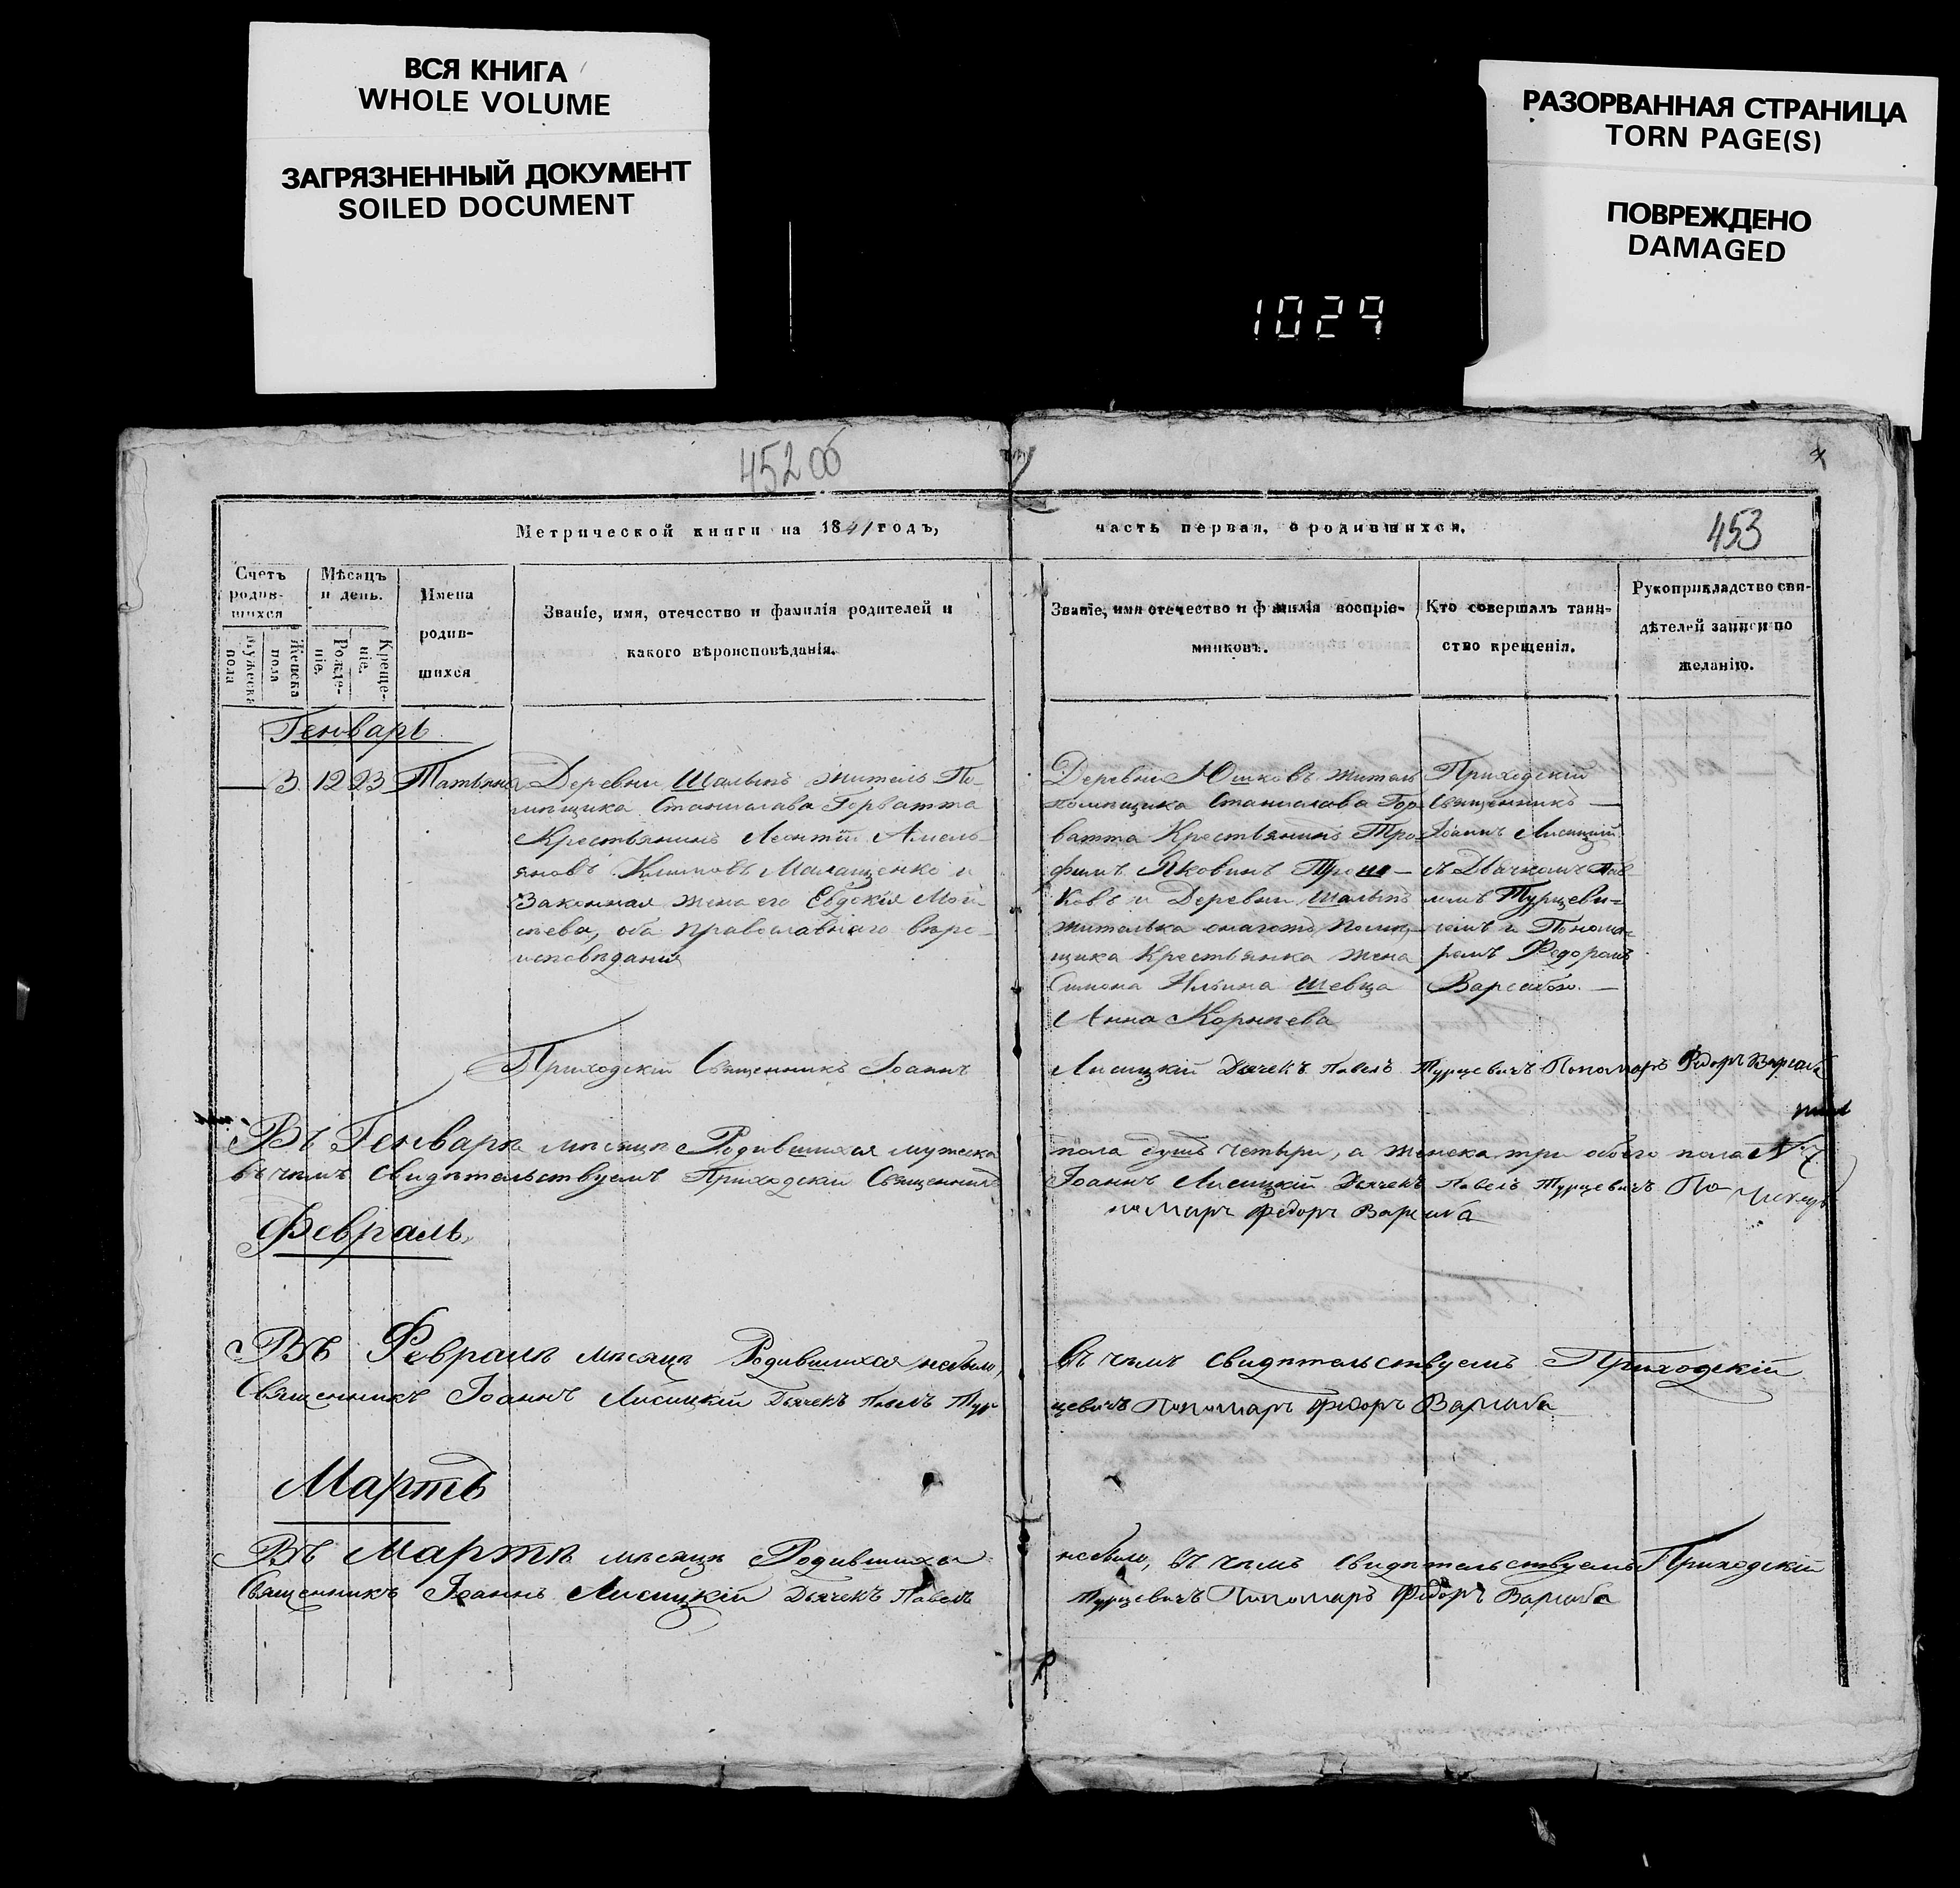 ВСЯ КНИГА
WHOLE VOLUME
ЗАГРЯЗНЕННЫЙ ДОКУМЕНТ
SOILED DOCUMENT
РАЗОРВАННАЯ СТРАНИЦА
TORN PAGE(S)
ПОВРЕЖДЕНО
DAMAGED
1029
452 об
453
Метрической книги на 1841 годъ,
часть первая, о родившихся.
Счетъ родив-шихся
Мужеска пола
Женска пола
Мѣсяцъ и день.
Рожде-нiе.
Креще-нiе.
Имена
родив-
шихся
Званiе, имя, отечество и фамилiя родителей и
какого вѣроисповѣданiя.
Званiе, имя отечество и фамилiя воспрiе-
мниковъ.
Кто совершалъ таин-
ство крещенiя.
Рукоприкладство сви-
дѣтелей записи по
желанiю.
Генварь
3 12 23 Татьяна
Деревни Шалынъ житель По-
мѣщика Станислава Горватта
Крестьянинъ Леонтiй Амель-
яновъ Климовъ Малащенко и
Законная жена его Евдокiя Мои-
сѣева, оба православнаго вѣро-
исповѣданiя
Деревни Юшковъ житель
помѣщика Станислава Гор-
ватта Крестьянинъ Тро-
фимъ Яковинъ Трош-
ковъ и Деревни Шалынъ
жителька онагожъ помѣ-
щика Крестьянка жена
Симона Ильина Шевца
Анна Корнѣева
Приходскiй
Священникъ —
Iоаннъ Лисицкiй
съ Дьячкомъ Пав-
ломъ Турцеви-
чемъ и Понома-
ремъ Федоромъ
Варсабою. —
Приходскiй Священникъ Iоаннъ
Лисицкiй Дьячекъ Павелъ Турцевичъ Пономаръ Федоръ Варсаба
Въ Генварѣ мѣсяцѣ Родившихся мужеска
пола душъ четыри, а женска три обоего пола № 7
въ чемъ свидѣтельствуемъ Приходскiй Священникъ
Iоаннъ Лисицкiй Дьячекъ Павелъ Турцевичъ По
номаръ Федоръ Варсаба
Февраль
Въ Февралѣ мѣсяцѣ Родившихся небыло,
въ чемъ свидѣтельствуемъ Приходскiй
Священникъ Iоаннъ Лисицкiй Дьячекъ Павелъ Тур
цевичъ Пономаръ Федоръ Варсаба
Мартъ
Въ Мартѣ мѣсяцѣ Родившихся
небыло, въ чемъ свидѣтельствуемъ Приходскiй
Священникъ Iоаннъ Лисицкiй Дьячекъ Павелъ
Турцевичъ Пономаръ Федоръ Варсаба